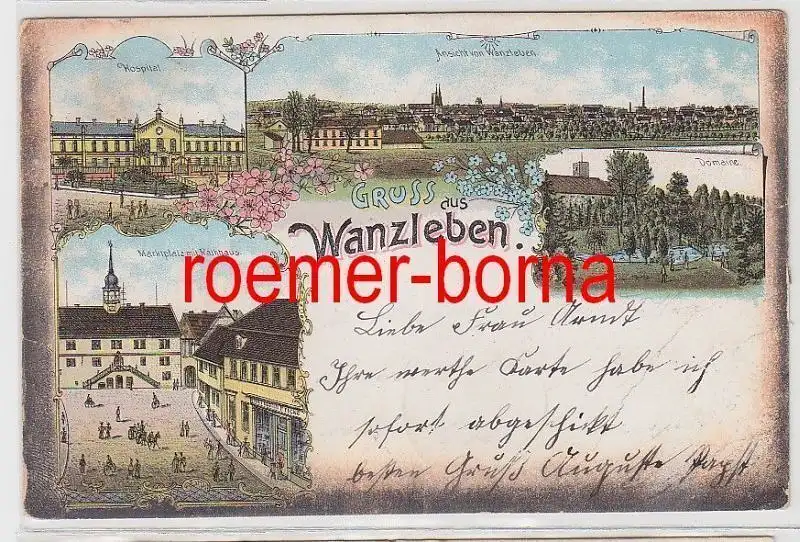 Hospital.
Ansicht von Wanzleben.
Domaine.
GRUSS
aus
Wanzleben.
Marktplatz mit Rathaus.
roemer-borna
Liebe Frau Arndt
Ihre werthe Karte habe ich
sofort abgeschickt
besten Gruß Auguste Papst